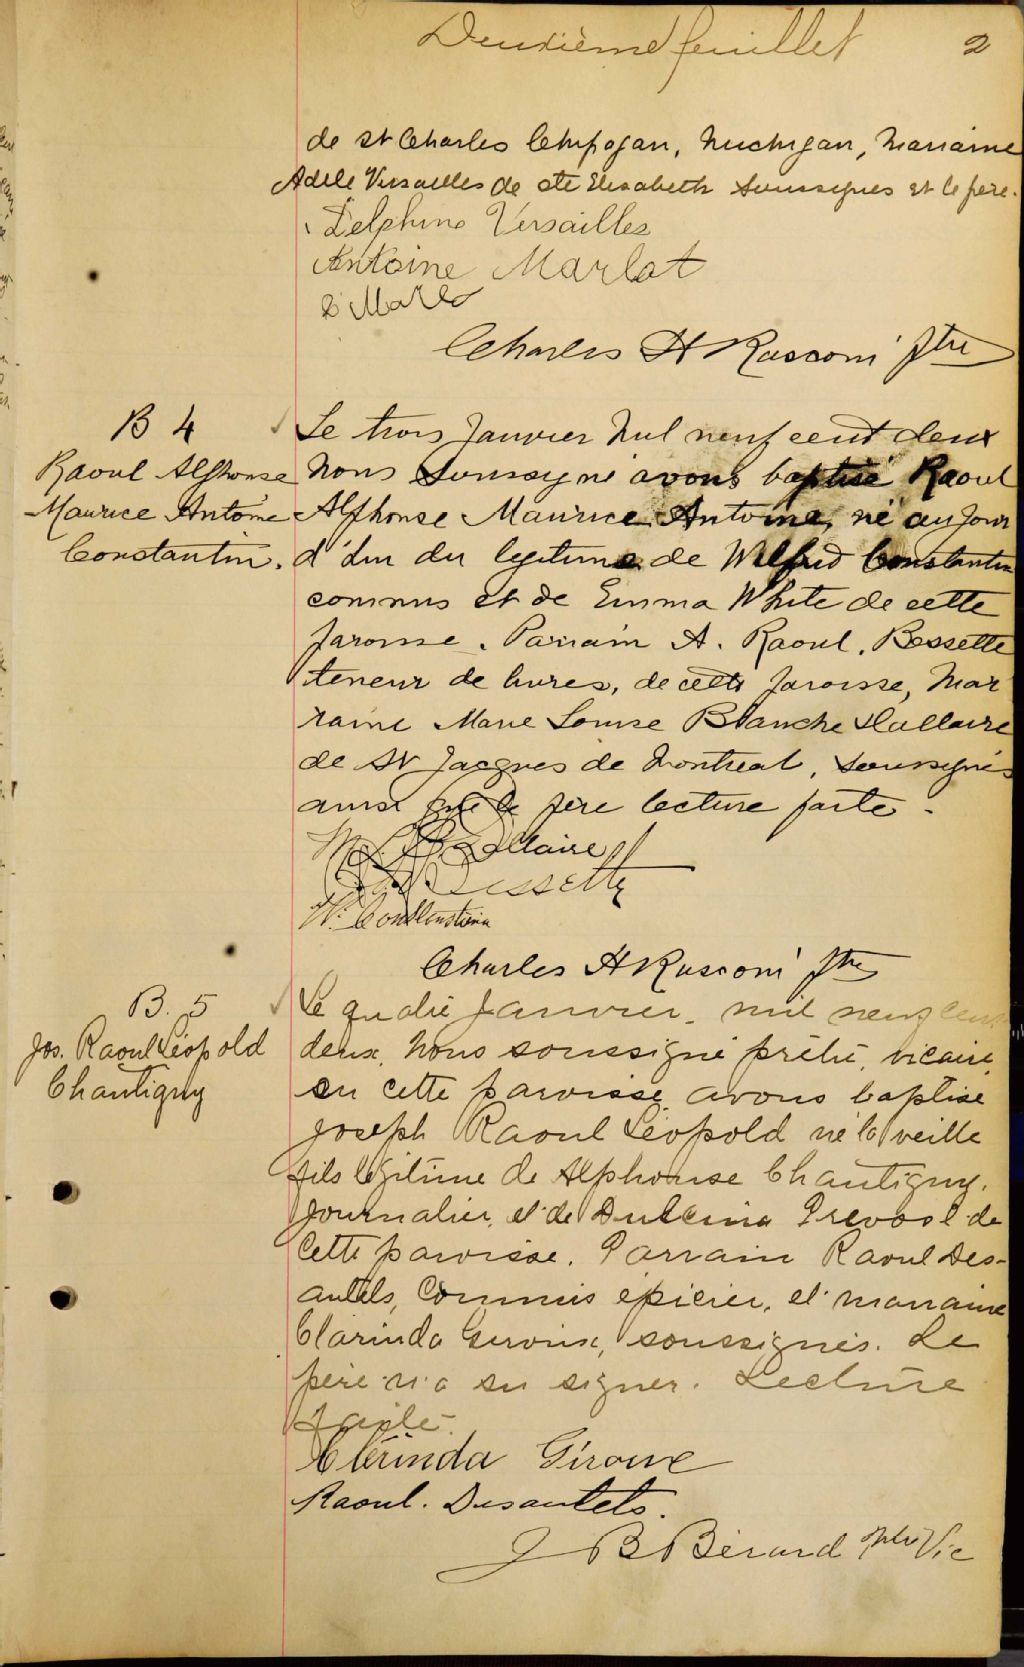 Deuxième feuillet 2
de St Charles Chipogan, Michigan, Marraine
Adèle Versailles de Ste Elisabeth Soussignés et le père.
Delphine Versailles
Antoine Marlot
Charles H Rusconi Ptre
B 4
Raoul Alphonse
Maurice Antoine
Constantin.
Le trois Janvier Mil neuf cent deux
Nous Soussigné avons baptisé Raoul
Alphonse Maurice Antoine, né aujour
d'hui du légitime de Wilfrid Constantin
commis et de Emma White de cette
paroisse. Parrain A. Raoul. Bessette
teneur de livres, de cette paroisse, Mar
raine Marie Louise Blanche Dallaire
de St Jacques de Montreal, soussignés
ainsi que le père lecture faite.
Dallaire
Bessette
W. Constantin
Charles H Rusconi Ptre
B. 5
Jos. Raoul Léopold
Chantigny
Le quatre Janvier mil neuf cent
deux, Nous soussigné prêtre, vicaire
en cette paroisse avons baptisé
Joseph Raoul Léopold né la veille
fils légitime de Alphonse Chantigny,
journalier, et de Dulcina Prevost de
cette paroisse. Parrain Raoul Des-
autels, Commis épicier, et marraine
Clarinda Giroux, soussignés. Le
père n'a su signer. Lecture
faite.
Clérinda Giroux
Raoul. Desautels.
J B Bérard ptre Vic